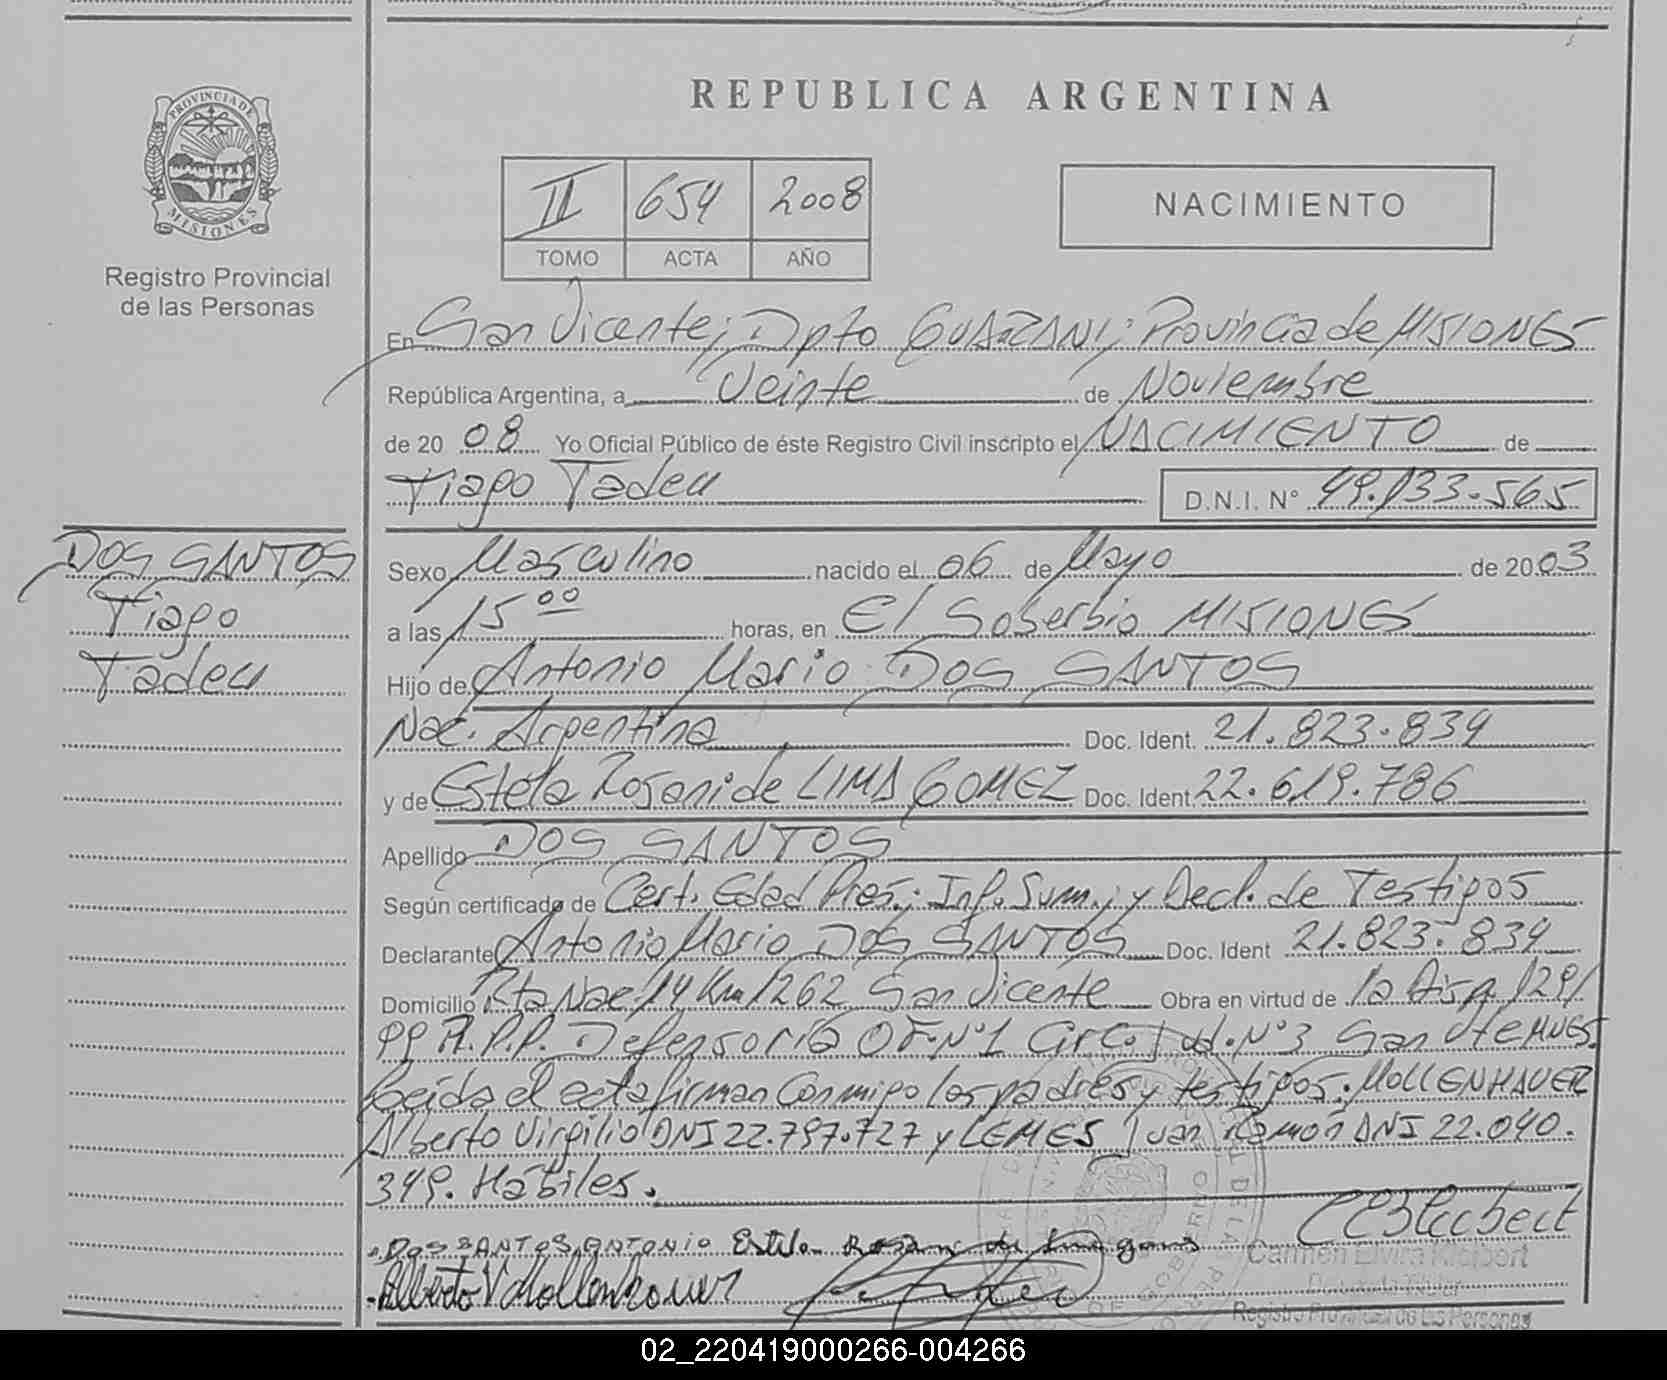 REPUBLICA ARGENTINA
PROVINCIA DE MISIONES
Registro Provincial
de las Personas
II 654 2008
TOMO ACTA AÑO
NACIMIENTO
En San Vicente; Dpto GUARANI; Provincia de MISIONES
República Argentina, a Veinte de Noviembre
de 20 08 Yo Oficial Público de éste Registro Civil inscripto el NACIMIENTO de
Tiago Tadeu D.N.I. N° 49.133.565
DOS SANTOS
Tiago
Tadeu
Sexo Masculino nacido el 06 de Mayo de 20 03
a las 15 00 horas, en El Soberbio MISIONES
Hijo de Antonio Mario DOS SANTOS
Nac. Argentina Doc. Ident. 21.823.839
y de Estela Rosani de LIMA GOMEZ Doc. Ident 22.619.786
Apellido DOS SANTOS
Según certificado de Cert. Edad Pres.; Inf. Sum.; y Decl. de Testigos
Declarante Antonio Mario DOS SANTOS Doc. Ident 21.823.839
Domicilio Rta Nac. 14 Km 1262 San Vicente Obra en virtud de la Disp. 1291
99 R.P.P. Defensoría OF. N°1 Circ. Jud. N°3 San Vte MNES.
Leída el acta firman conmigo los padres y testigos: MOLLENHAUER
Alberto Virgilio DNI 22.797.727 y LEMES Juan Ramón DNI 22.040.
349. Hábiles.
DOS SANTOS ANTONIO Estela Rosani de
Alberto V Mollenhauer
Carmen Elvira Kleibert
Registro Provincial de las Personas
02_220419000266-004266